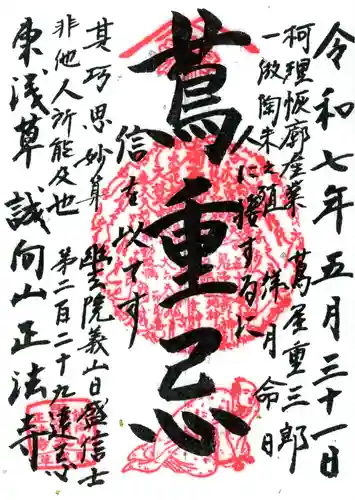 令和七年五月三十一日
柯理恢廓産業
一倣陶朱之顛
人に憎まず為に
信を以てす
蔦屋重三郎
祥月命日
蔦重忌
其巧思妙算
非他人所能及也
幽玄院義山日盛信士
第二百二十九遠忌
東浅草 誠向山正法寺